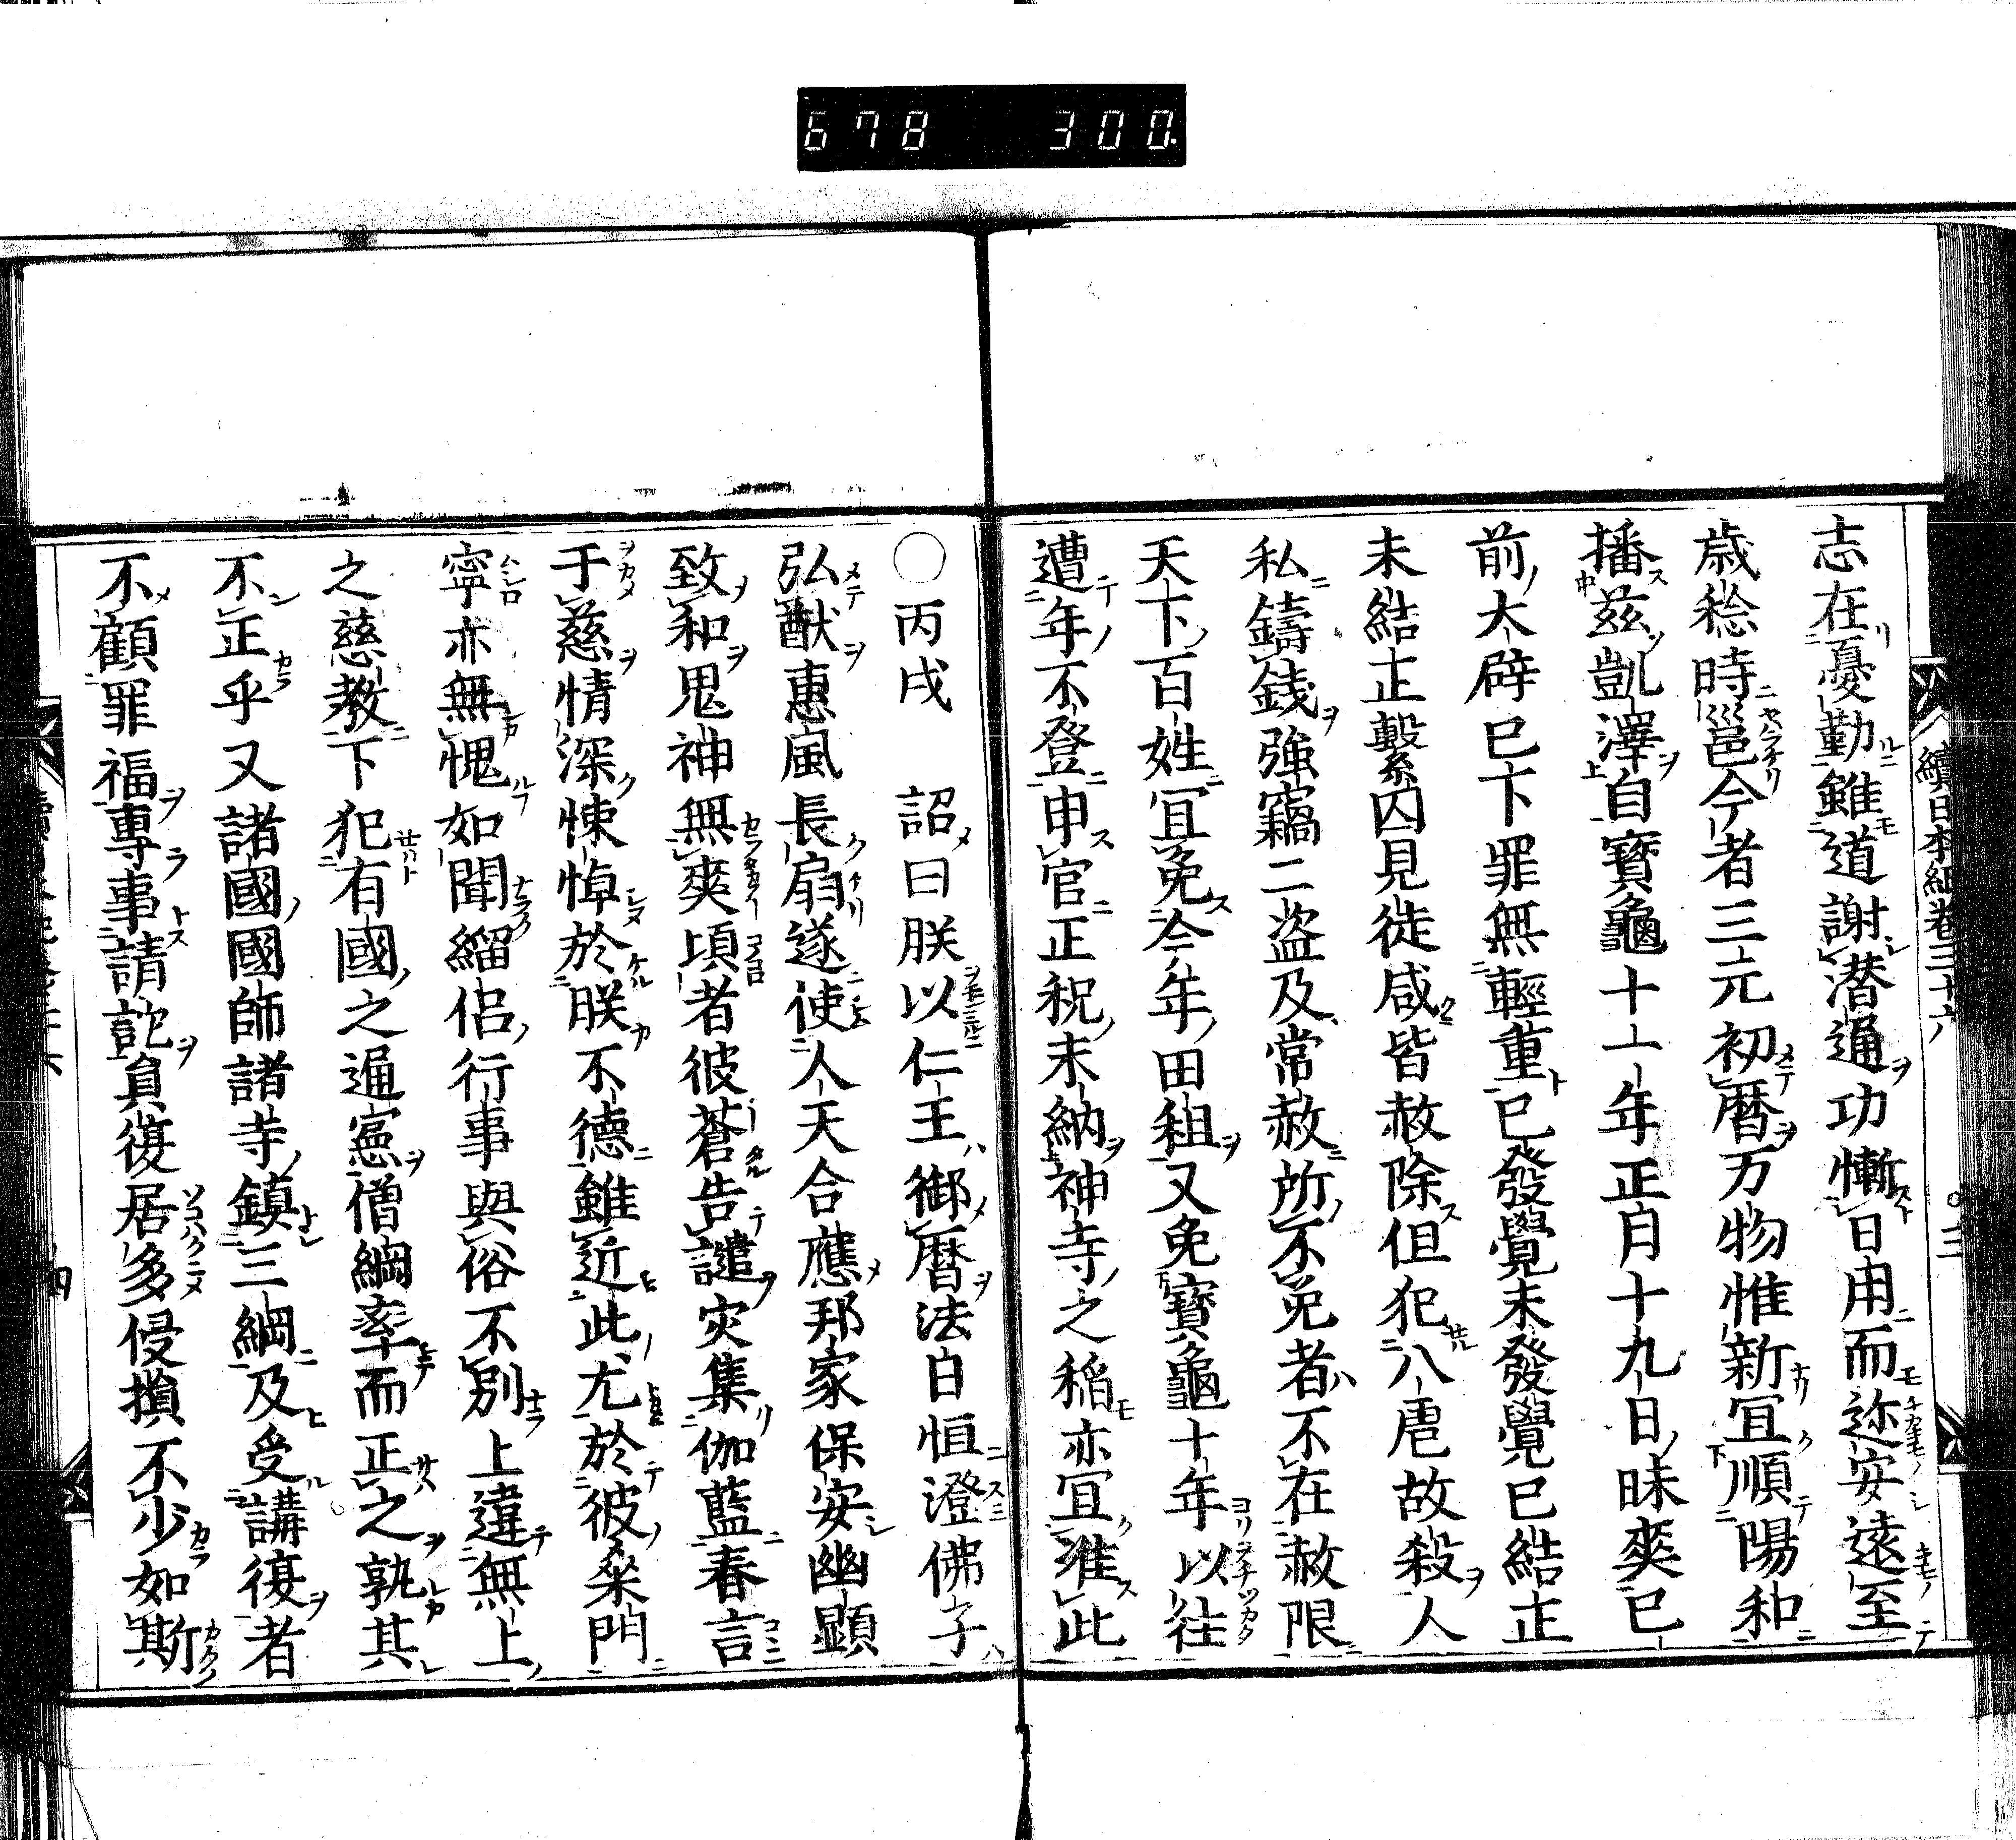 678 300.
續日本紀卷三十六
志在憂勤雖道謝潜通功慚日用而迩安遠至
歳稔時邕今者三元初暦万物惟新宜順陽和
播茲凱澤自寳龜十一年正月十九日昧爽已
前大辟已下罪無輕重已發覺未發覺已結正
未結正繫囚見徒咸皆赦除但犯八虐故殺人
私鑄錢強竊二盗及常赦所不免者不在赦限
天下百姓宜免今年田租又免寳龜十年以往
遭年不登申官正税未納神寺之稲亦宜准此
〇丙戌 詔曰朕以仁王御暦法日恒澄佛子
弘猷惠風長扇遂使人天合應邦家保安幽顕
致和鬼神無爽頃者彼蒼告譴灾集伽藍眷言
于慈情深悚悼於朕不德雖近此尤於彼桑門
寧亦無愧如聞緇侶行事與俗不別上違無上
之慈教下犯有國之通憲僧綱率而正之孰其
不正乎又諸國國師諸寺鎮三綱及受講復者
不顧罪福專事請託員復居多侵損不少如斯